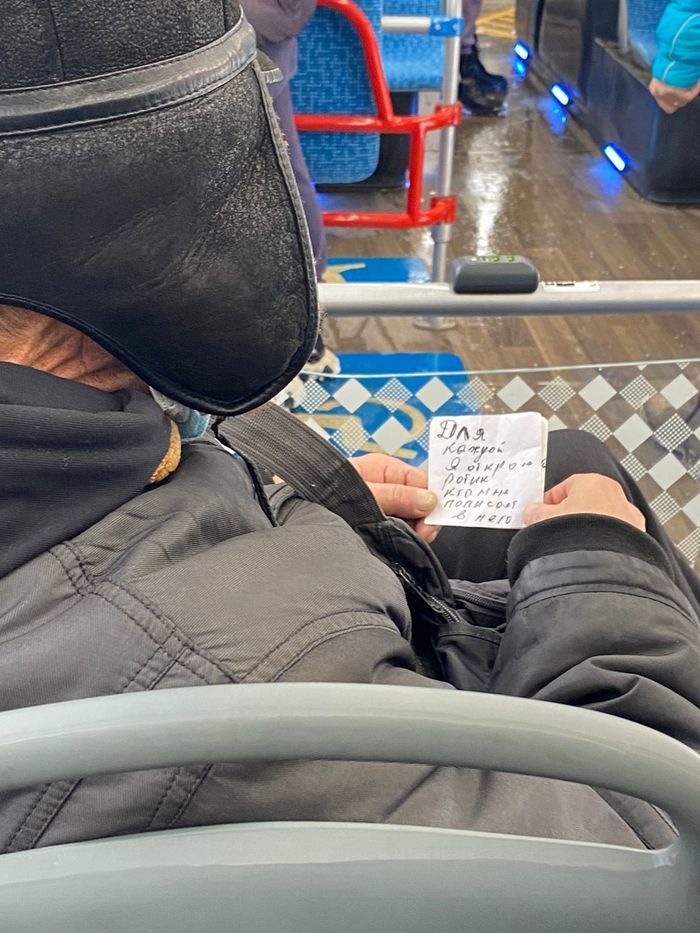 Для
каждой
я открою
ротик
кто мне
пописает
в него